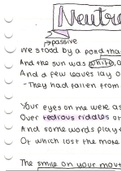 Neutra
passive
We stood by a pond tha
And the sun was white, a
And a few leaves lay o
- They had fallen from
Your eyes on me were as
Over tedious riddles o
And some words play
Of which lost the more
The smile on your mout